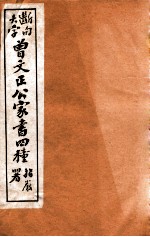 斷句大字
曾文正公家書四種
署